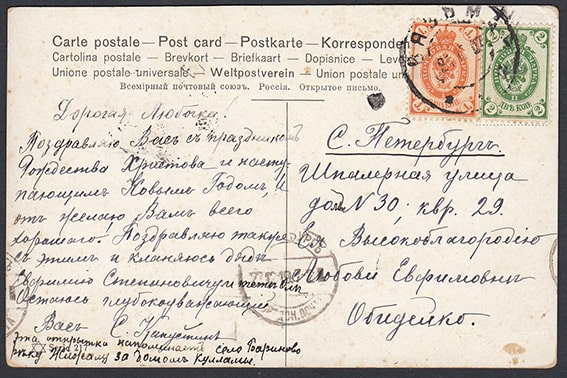 Carte postale — Post card — Postkarte — Korrespondenz
Cartolina postale — Brevkort — Briefkaart — Dopisnice — Leve
Unione postale universale. Weltpostverein — Union postale univ
Всемірный почтовый союзъ. Россия. Открытое письмо.
1 1
2 2
ДВѢ КОП
Дорогая Любочка!
Поздравляю Васъ съ праздникомъ
Рождества Христова и насту-
пающимъ Новымъ Годомъ, и
отъ желаю Вамъ всего
хорошаго. Поздравляю также
съ этимъ и кланяюсь дядѣ
Степановичу и тетѣ
Остаюсь глубокоуважающій
Васъ С. Капустинъ
эта открытка напоминаетъ село
рѣку за домомъ
С. Петербургъ.
Шпалерная улица
домъ N 30, квр. 29.
Высокоблагородію
Любови Ефимовны
Обидейко.